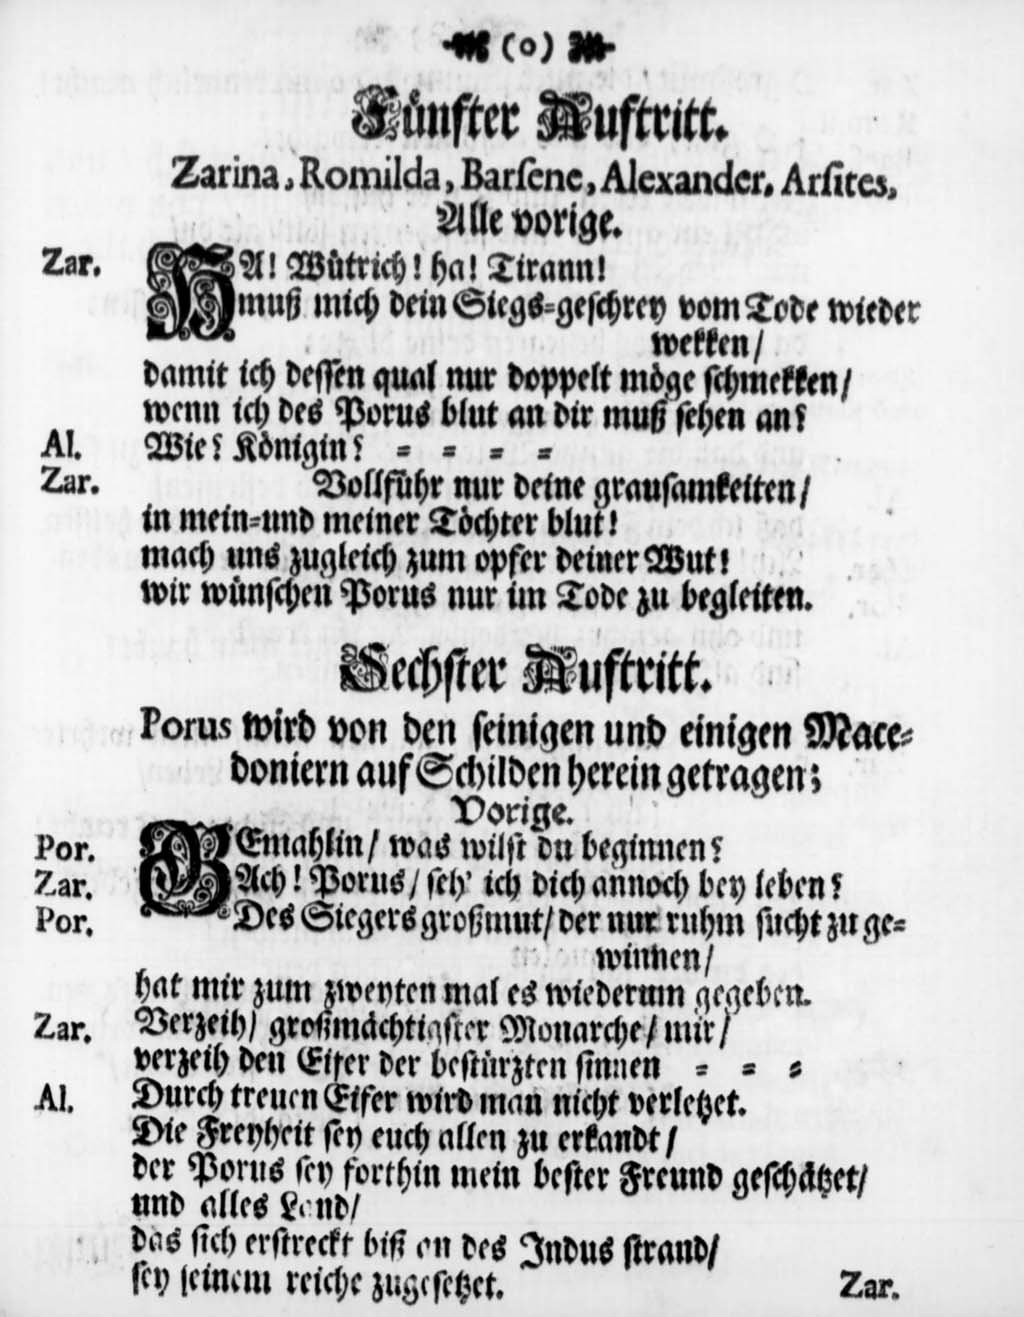 (o)
Fünfter Auftritt.
Zarina, Romilda, Barsene, Alexander, Arsites,
Alle vorige.
Zar. HA! Wütrich! ha! Tirann!
muß mich dein Siegs-geschrey vom Tode wieder
wekken/
damit ich dessen qual nur doppelt möge schmekken/
wenn ich des Porus blut an dir muß sehen an?
Al. Wie? Königin? = = = =
Zar. Vollführ nur deine grausamkeiten/
in mein-und meiner Töchter blut!
mach uns zugleich zum opfer deiner Wut!
wir wünschen Porus nur im Tode zu begleiten.
Sechster Auftritt.
Porus wird von den seinigen und einigen Mace-
doniern auf Schilden herein getragen;
Vorige.
Por. GEmahlin/ was wilst du beginnen?
Zar. Ach! Porus/ seh' ich dich annoch bey leben?
Por. Des Siegers großmut/ der nur ruhm sucht zu ge-
winnen/
hat mir zum zweyten mal es wiederum gegeben.
Zar. Verzeih/ großmächtigster Monarche/ mir/
verzeih den Eifer der bestürzten sinnen = = =
Al. Durch treuen Eifer wird man nicht verletzet.
Die Freyheit sey euch allen zu erkandt/
der Porus sey forthin mein bester Freund geschätzet/
und alles Land/
das sich erstreckt biß an des Indus strand/
sey seinem reiche zugesetzet.
Zar.